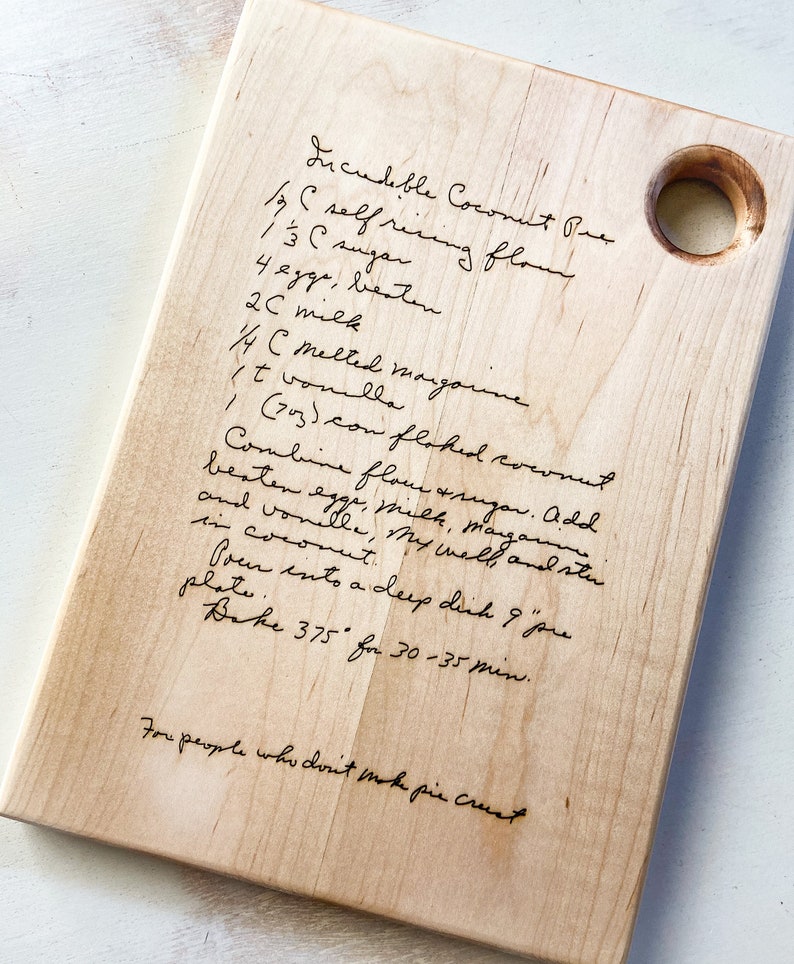 Incredible Coconut Pie
1/2 C self rising flour
1 1/3 C sugar
4 eggs, beaten
2 C milk
1/4 C Melted Margarine
1 t vanilla
1 (7oz) can flaked coconut
Combine flour & sugar. Add
beaten eggs, Milk, Margarine
and vanilla, Mix well, and stir
in coconut.
Pour into a deep dish 9" pie
plate.
Bake 375° for 30-35 Min.
For people who don't make pie crust